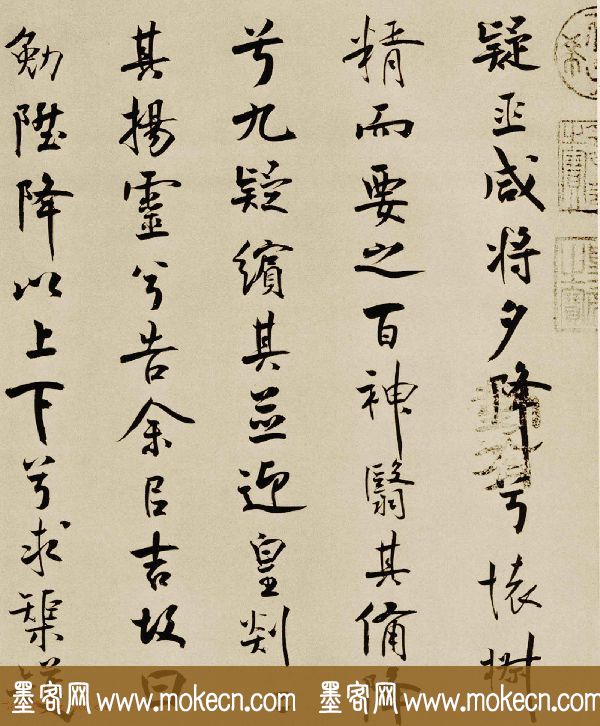 疑巫咸将夕降兮懷椒
精而要之百神翳其備降
兮九疑繽其並迎皇剡
其揚靈兮告余㠯吉故曰
勉陞降以上下兮求榘矱
墨客网 www.mokecn.com 墨客网 www.mokecn.com